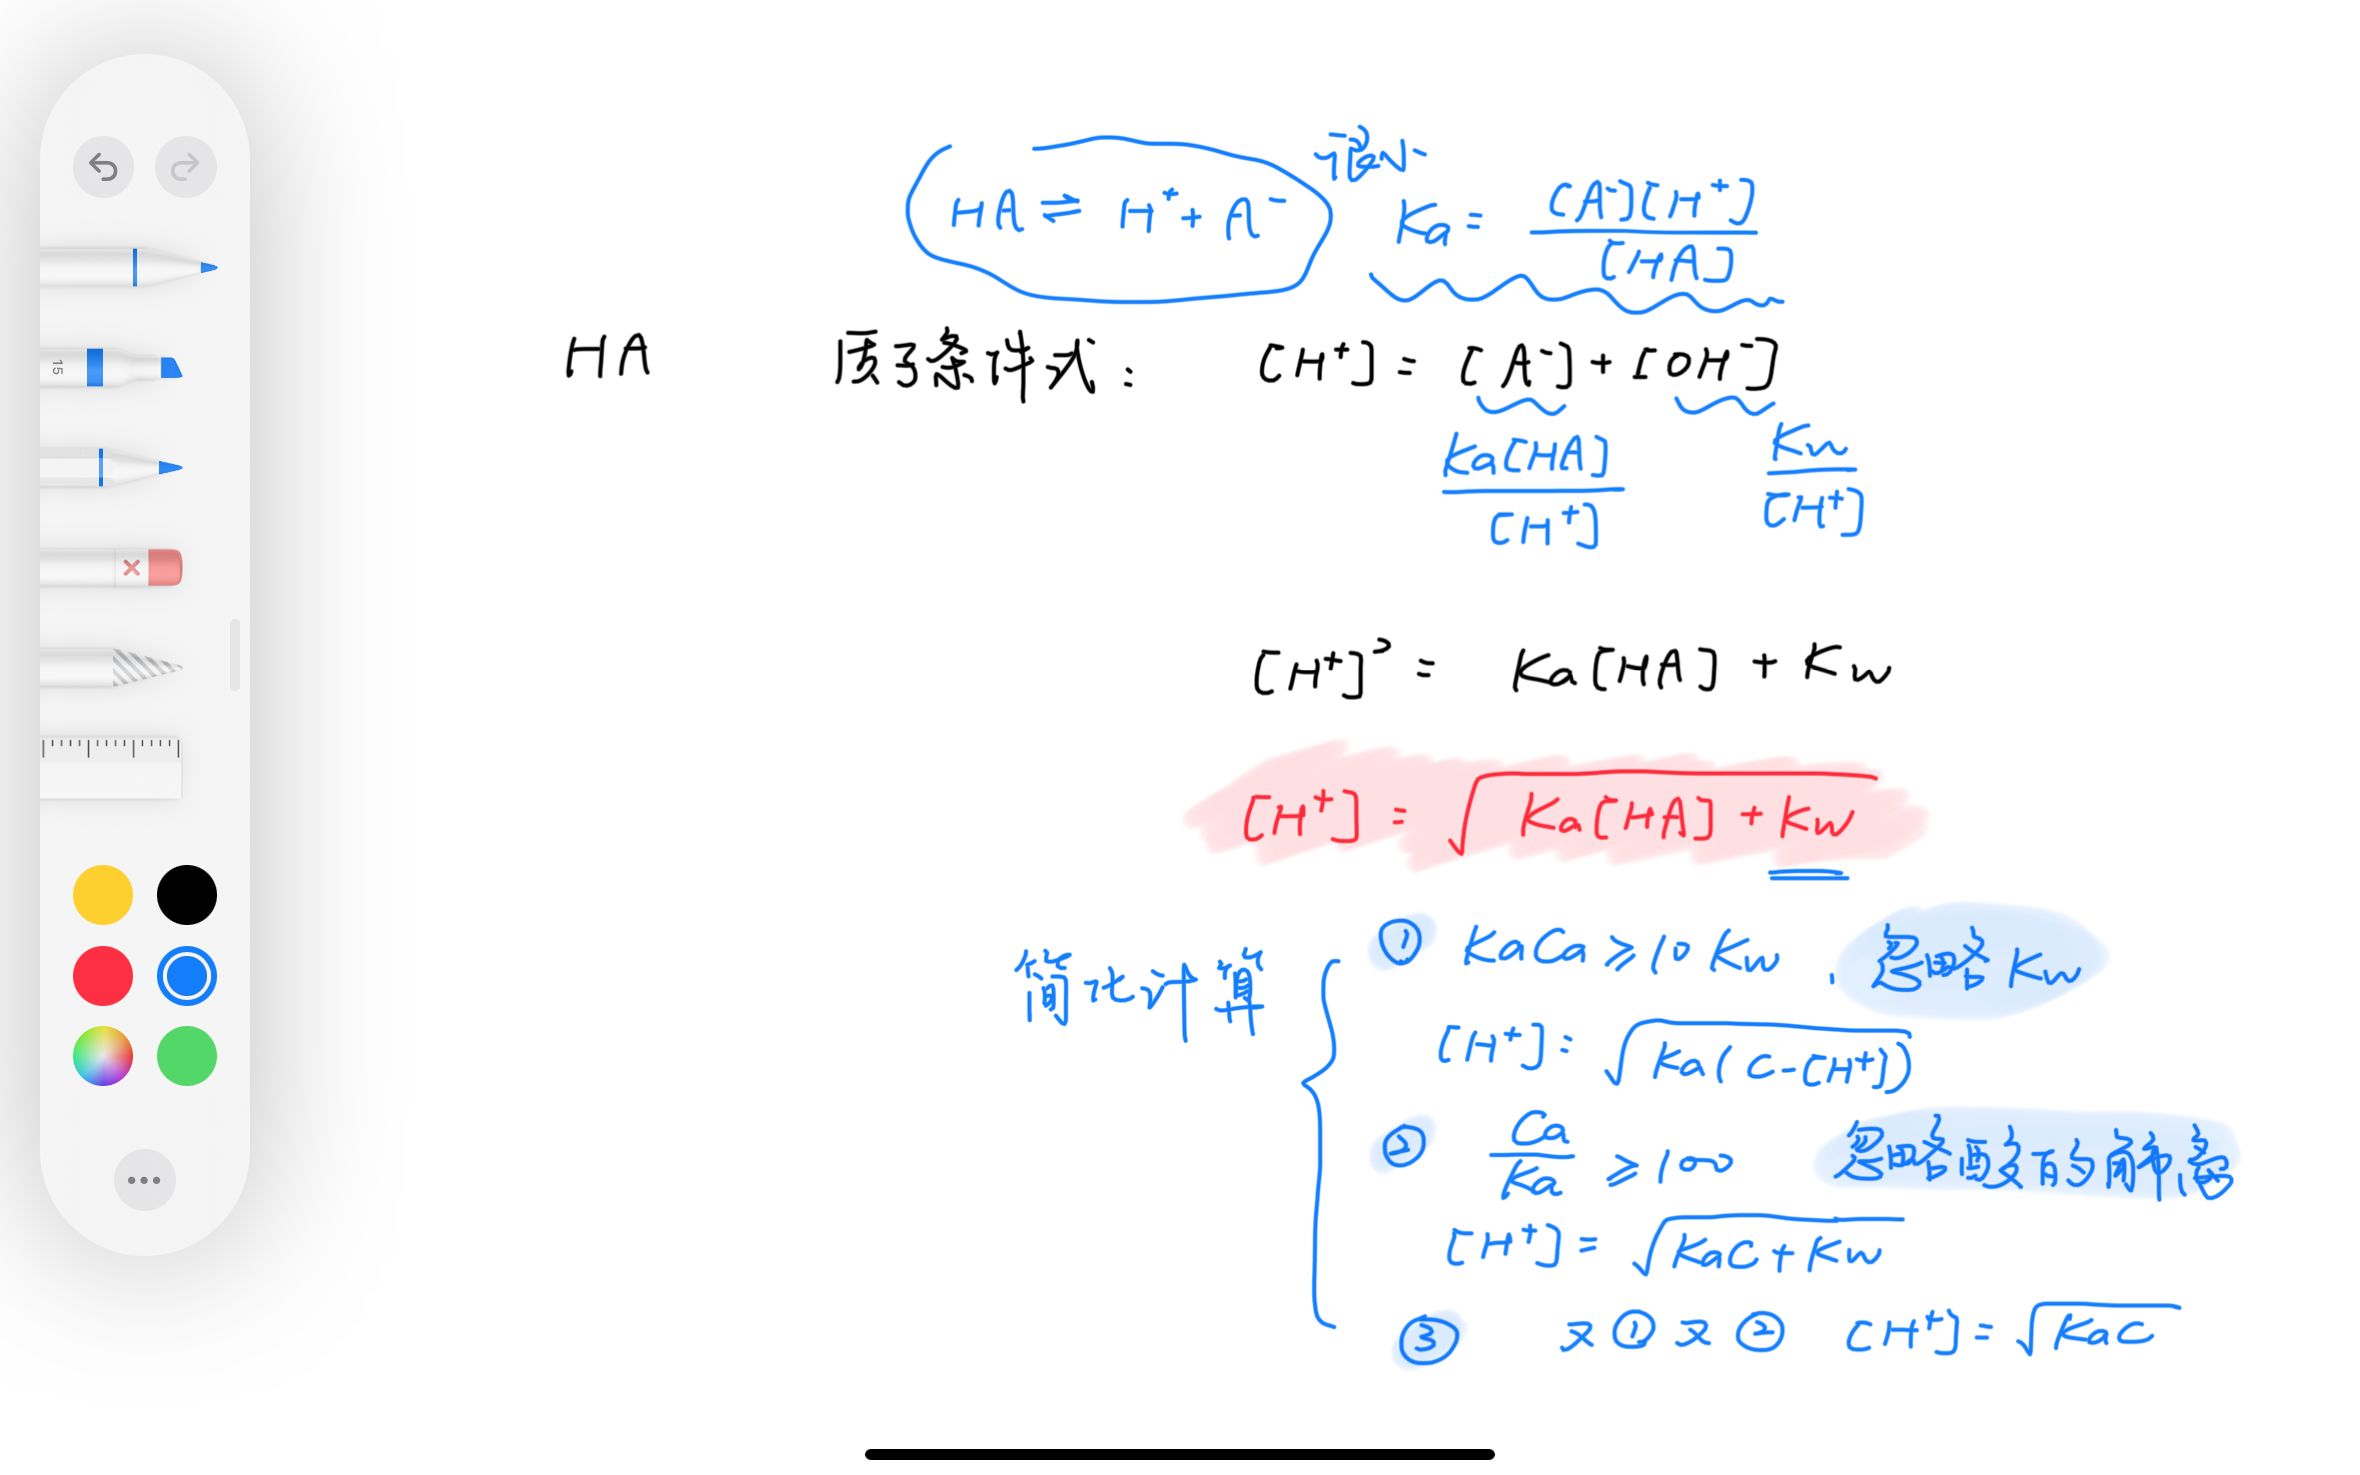 HA ⇌ H⁺ + A⁻ Ka = [A⁻][H⁺] / [HA]
HA 质子条件式： [H⁺] = [A⁻] + [OH⁻]
Ka[HA] / [H⁺] Kw / [H⁺]
[H⁺]² = Ka[HA] + Kw
[H⁺] = √(Ka[HA] + Kw)
简化计算
① KaCa ≥ 10 Kw . 忽略 Kw
[H⁺] = √(Ka(C-[H⁺]))
② Ca / Ka ≥ 100 忽略酸的解离
[H⁺] = √(KaC + Kw)
③ 又 ① 又 ② [H⁺] = √(KaC)
15